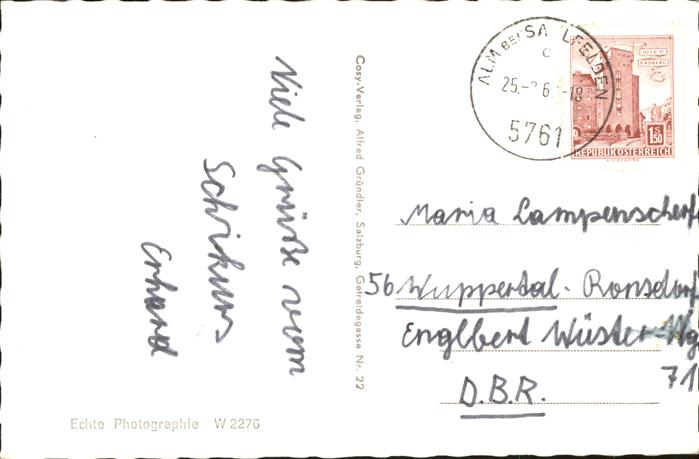 Viele Grüße vom
Schikurs
Erhard
Cosy-Verlag, Alfred Gründler, Salzburg, Getreidegasse Nr. 22
Echte Photographie W 2276
ALM BEI SAALFELDEN
25.-
-18
c
5761
WIEN
ERDBERG
S
1.50
REPUBLIK ÖSTERREICH
Maria Lampenscherf
56 Wuppertal-Ronsdorf
Englbert Wüster-Wg
71
D.B.R.